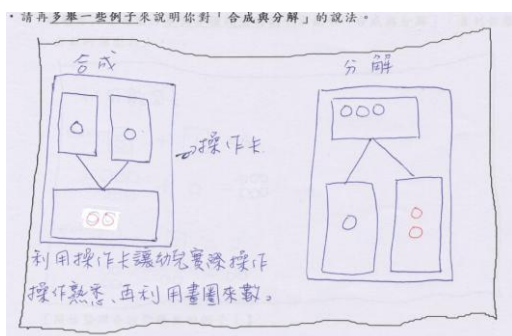 ·請再多舉一些例子來說明你對「合成與分解」的說法。
合成
分解
操作卡
利用操作卡讓幼兒實際操作
操作熟悉、再利用畫圖來數。